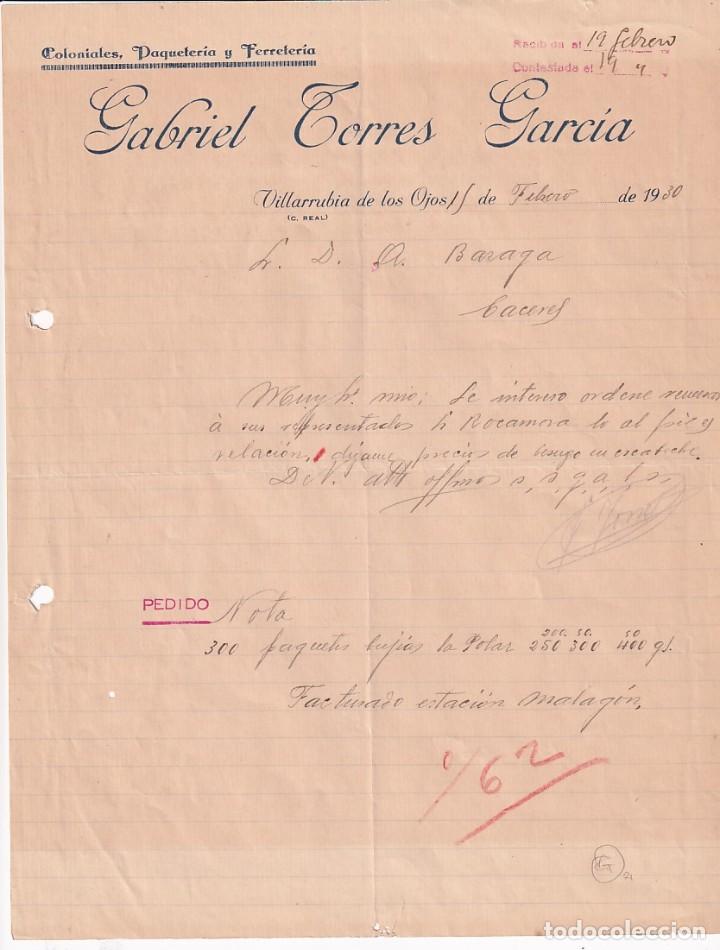 Coloniales, Paquetería y Ferretería
Recibida el 19 febrero
Contestada el 19 "
Gabriel Torres García
Villarrubia de los Ojos 15 de Febrero de 1930
(C. REAL)
Sr. D. A. Baraga
Caceres
Muy Sr. mio; Le intereso ordene
á sus representados Rocamora lo al pie y
relación, digame precios de besugo en escabeche.
De V. atto s, s, q, a, b, s,
PEDIDO Nota
200. 50. 50
300 paquetes bujias la Polar 250 300 400 gs.
Facturado estación Malagón,
62
G
todocoleccion.net